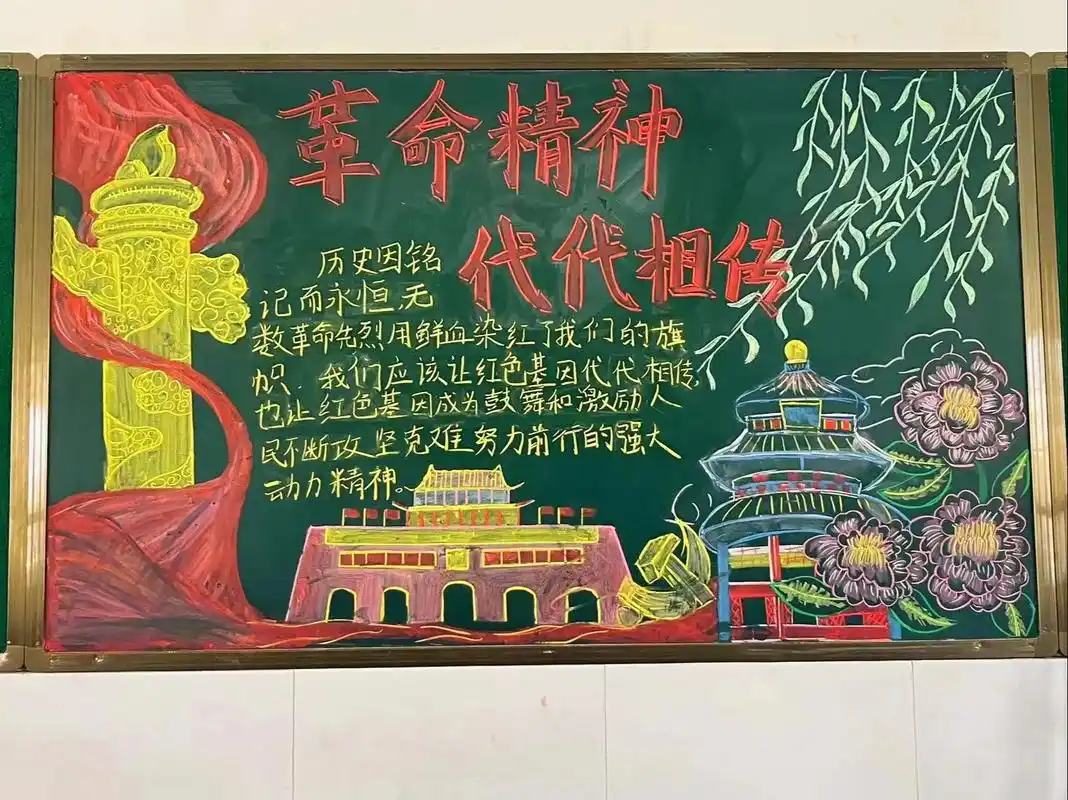 革命精神
代代相传
历史因铭
记而永恒,无
数革命先烈用鲜血染红了我们的旗
帜.我们应该让红色基因代代相传,
也让红色基因成为鼓舞和激励人
民不断攻坚克难努力前行的强大
动力精神。